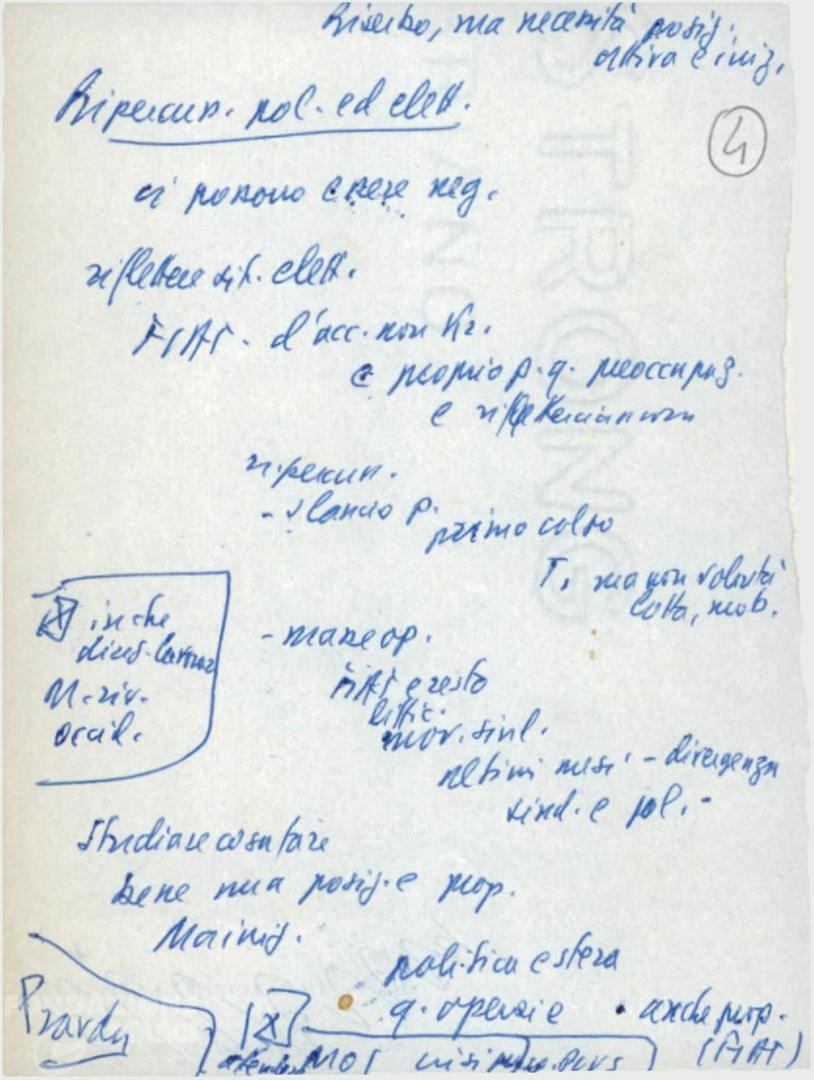 Riserbo, ma necessità posiz.
attiva e iniz.
4
Ripercuss. pol. ed elett.
ci possono essere neg.
riflettere sit. elett.
FIAT - d'acc. non Kr.
e proprio p. q. preoccupaz.
e rifletteriamo
ripercuss.
- slancio p.
primo colpo
T. ma non volontà
lotta, mob.
in che
direz.
M. riv.
occid.
- masse op.
FIAT e resto
diffic.
mov. sind.
ultimi mesi - divergenza
sind. e pol. -
Studiare cosa fare
Bene mia posiz. e prop.
Ma iniz.
politica estera
q. operaie • anche prop.
(FIAT)
Pravda
MOS